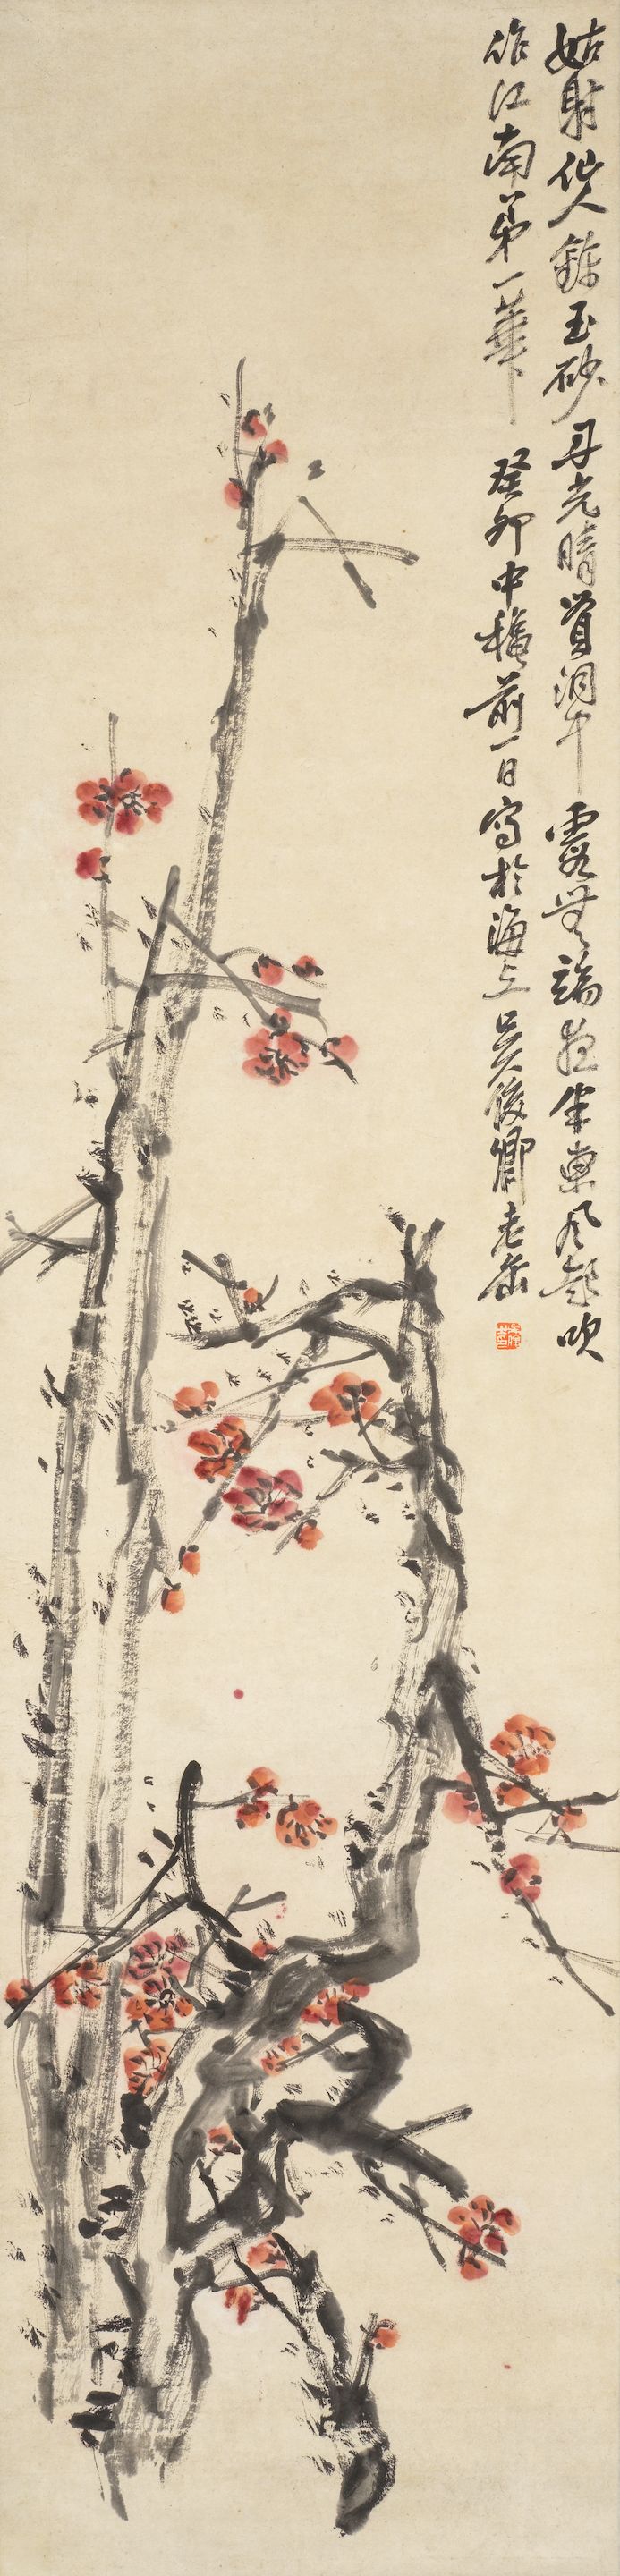 姑射仙人鍊玉砂丹光晴貫洞中霞無端夜半東風起吹
作江南第一華 癸卯中穐前一日寫於海上吳俊卿老缶